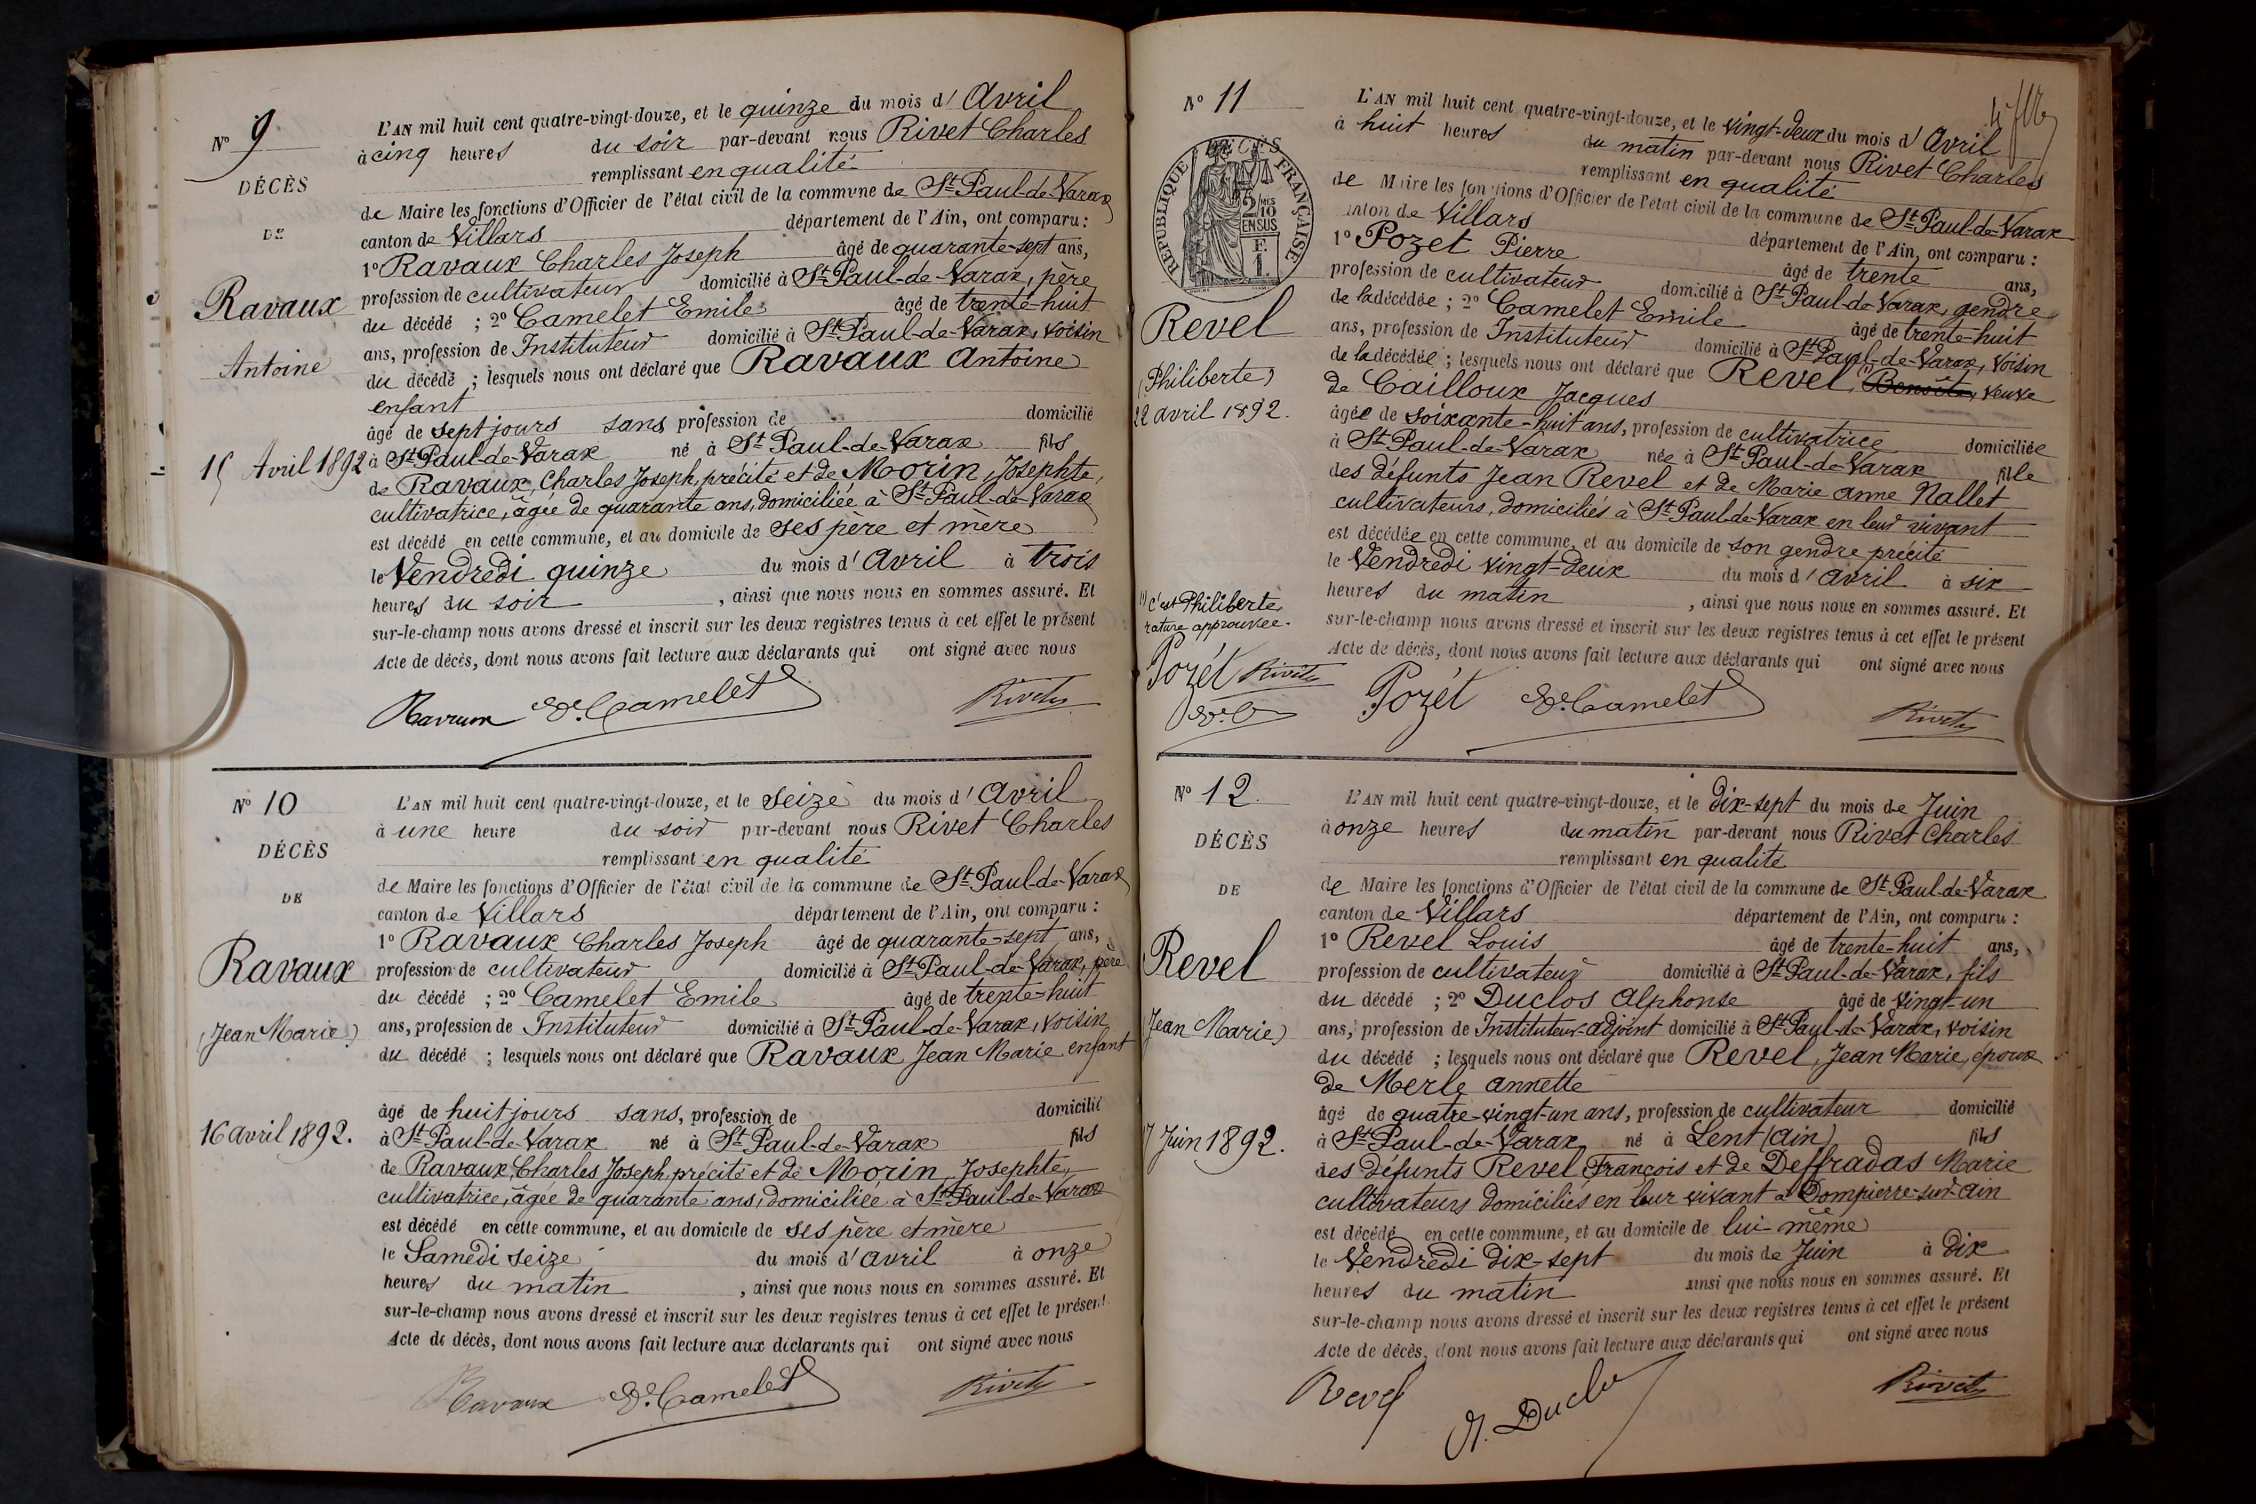 N° 9
DÉCÈS
DE
Ravaux
Antoine
15 Avril 1892
L'AN mil huit cent quatre-vingt-douze, et le quinze du mois d'Avril
à cinq heures du soir par-devant nous Rivet Charles
remplissant en qualité
de Maire les fonctions d'Officier de l'état civil de la commune de St Paul-de-Varax
canton de Villars département de l'Ain, ont comparu :
1° Ravaux Charles Joseph âgé de quarante-sept ans,
profession de cultivateur domicilié à St Paul-de-Varax, père
du décédé ; 2° Camelet Emile âgé de trente-huit
ans, profession de Instituteur domicilié à St Paul-de-Varax, voisin
du décédé ; lesquels nous ont déclaré que Ravaux Antoine
enfant
âgé de sept jours sans profession de domicilié
à St Paul-de-Varax né à St Paul-de-Varax fils
de Ravaux, Charles Joseph, précité et de Morin, Josephte,
cultivatrice, âgée de quarante ans, domiciliée à St Paul-de-Varax
est décédé en cette commune, et au domicile de ses père et mère
le Vendredi quinze du mois d'Avril à trois
heures du soir , ainsi que nous nous en sommes assuré. Et
sur-le-champ nous avons dressé et inscrit sur les deux registres tenus à cet effet le présent
Acte de décès, dont nous avons fait lecture aux déclarants qui ont signé avec nous
Ravaux E. Camelet Rivet
N° 10
DÉCÈS
DE
Ravaux
(Jean Marie)
16 avril 1892.
L'AN mil huit cent quatre-vingt-douze, et le seize du mois d'Avril
à une heure du soir par-devant nous Rivet Charles
remplissant en qualité
de Maire les fonctions d'Officier de l'état civil de la commune de St Paul-de-Varax
canton de Villars département de l'Ain, ont comparu :
1° Ravaux Charles Joseph âgé de quarante-sept ans,
profession de cultivateur domicilié à St Paul-de-Varax, père
du décédé ; 2° Camelet Emile âgé de trente-huit
ans, profession de Instituteur domicilié à St Paul-de-Varax, voisin
du décédé ; lesquels nous ont déclaré que Ravaux Jean Marie enfant
âgé de huit jours sans, profession de domicilié
à St Paul-de-Varax né à St Paul-de-Varax fils
de Ravaux, Charles Joseph, précité et de Morin, Josephte,
cultivatrice, âgée de quarante ans, domiciliée à St Paul-de-Varax
est décédé en cette commune, et au domicile de ses père et mère
le Samedi seize du mois d'avril à onze
heures du matin , ainsi que nous nous en sommes assuré. Et
sur-le-champ nous avons dressé et inscrit sur les deux registres tenus à cet effet le présent
Acte de décès, dont nous avons fait lecture aux déclarants qui ont signé avec nous
Ravaux E. Camelet Rivet
N° 11
DÉCÈS
RÉPUBLIQUE FRANÇAISE
2 MES
10
EN SUS
F.
1.
Revel
(Philiberte)
22 avril 1892.
L'AN mil huit cent quatre-vingt-douze, et le vingt-deux du mois d'Avril
à huit heures du matin par-devant nous Rivet Charles
remplissant en qualité
de Maire les fonctions d'Officier de l'état civil de la commune de St Paul-de-Varax
canton de Villars département de l'Ain, ont comparu :
1° Pozet Pierre âgé de trente ans,
profession de cultivateur domicilié à St Paul-de-Varax, gendre
de la décédée ; 2° Camelet Emile âgé de trente-huit
ans, profession de Instituteur domicilié à St Paul-de-Varax, voisin
de la décédée ; lesquels nous ont déclaré que Revel, (1) Benoîte, veuve
de Cailloux Jacques
âgée de soixante-huit ans, profession de cultivatrice domiciliée
à St Paul-de-Varax née à St Paul-de-Varax fille
des défunts Jean Revel et de Marie Anne Nallet
cultivateurs, domiciliés à St Paul-de-Varax en leur vivant
est décédée en cette commune, et au domicile de son gendre précité
le Vendredi vingt-deux du mois d'avril à six
heures du matin , ainsi que nous nous en sommes assuré. Et
sur-le-champ nous avons dressé et inscrit sur les deux registres tenus à cet effet le présent
Acte de décès, dont nous avons fait lecture aux déclarants qui ont signé avec nous
(1) c'est Philiberte,
rature approuvée.
Pozet Rivet
E. C
Pozet E. Camelet Rivet
N° 12.
DÉCÈS
DE
Revel
(Jean Marie)
17 Juin 1892.
L'AN mil huit cent quatre-vingt-douze, et le dix-sept du mois de Juin
à onze heures du matin par-devant nous Rivet Charles
remplissant en qualité
de Maire les fonctions d'Officier de l'état civil de la commune de St Paul-de-Varax
canton de Villars département de l'Ain, ont comparu :
1° Revel Louis âgé de trente-huit ans,
profession de cultivateur domicilié à St Paul-de-Varax, fils
du décédé ; 2° Duclos Alphonse âgé de vingt-un
ans, profession de Instituteur-adjoint domicilié à St Paul-de-Varax, voisin
du décédé ; lesquels nous ont déclaré que Revel, Jean Marie, époux
de Merle Annette
âgé de quatre-vingt-un ans, profession de cultivateur domicilié
à St Paul-de-Varax, né à Lent (Ain) fils
des défunts Revel, François et de Deffradas Marie
cultivateurs domiciliés en leur vivant à Dompierre-sur-Ain
est décédé en cette commune, et au domicile de lui-même
le Vendredi dix-sept du mois de Juin à dix
heures du matin ainsi que nous nous en sommes assuré. Et
sur-le-champ nous avons dressé et inscrit sur les deux registres tenus à cet effet le présent
Acte de décès, dont nous avons fait lecture aux déclarants qui ont signé avec nous
Revel A. Duclos Rivet